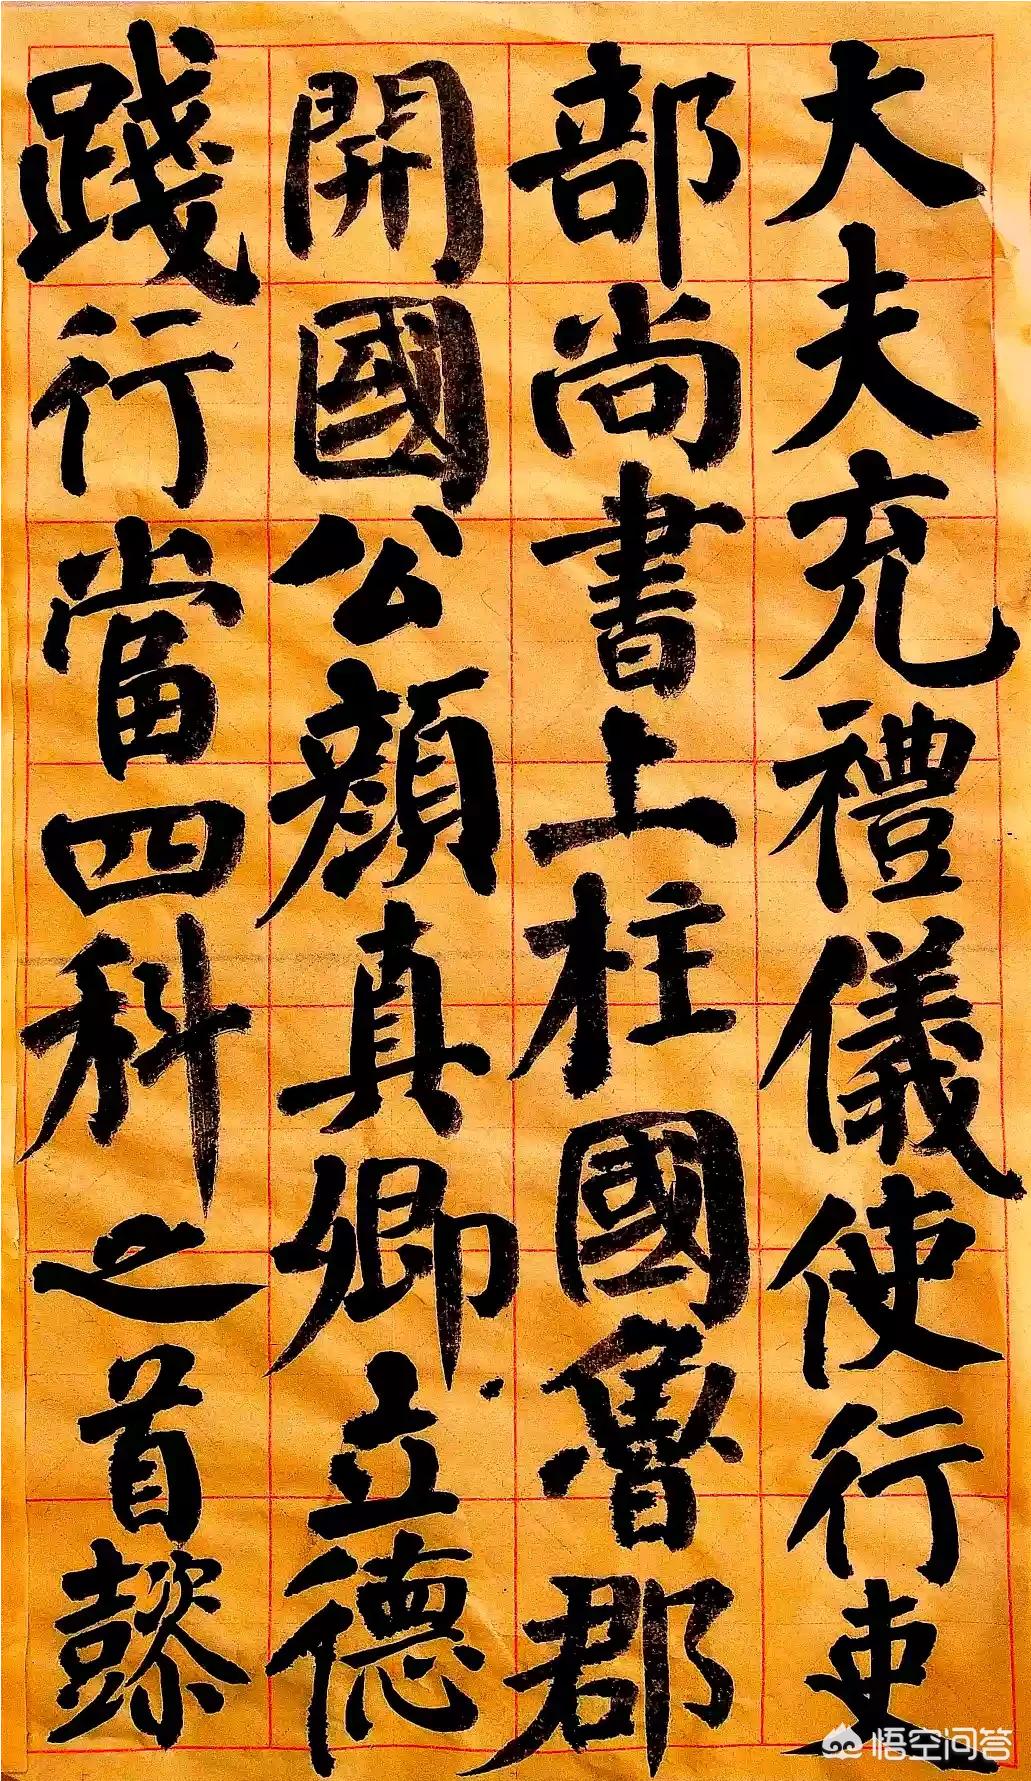 大夫充禮儀使行吏
部尚書上柱國魯郡
開國公顏真卿立德
踐行當四科之首懿
悟空问答